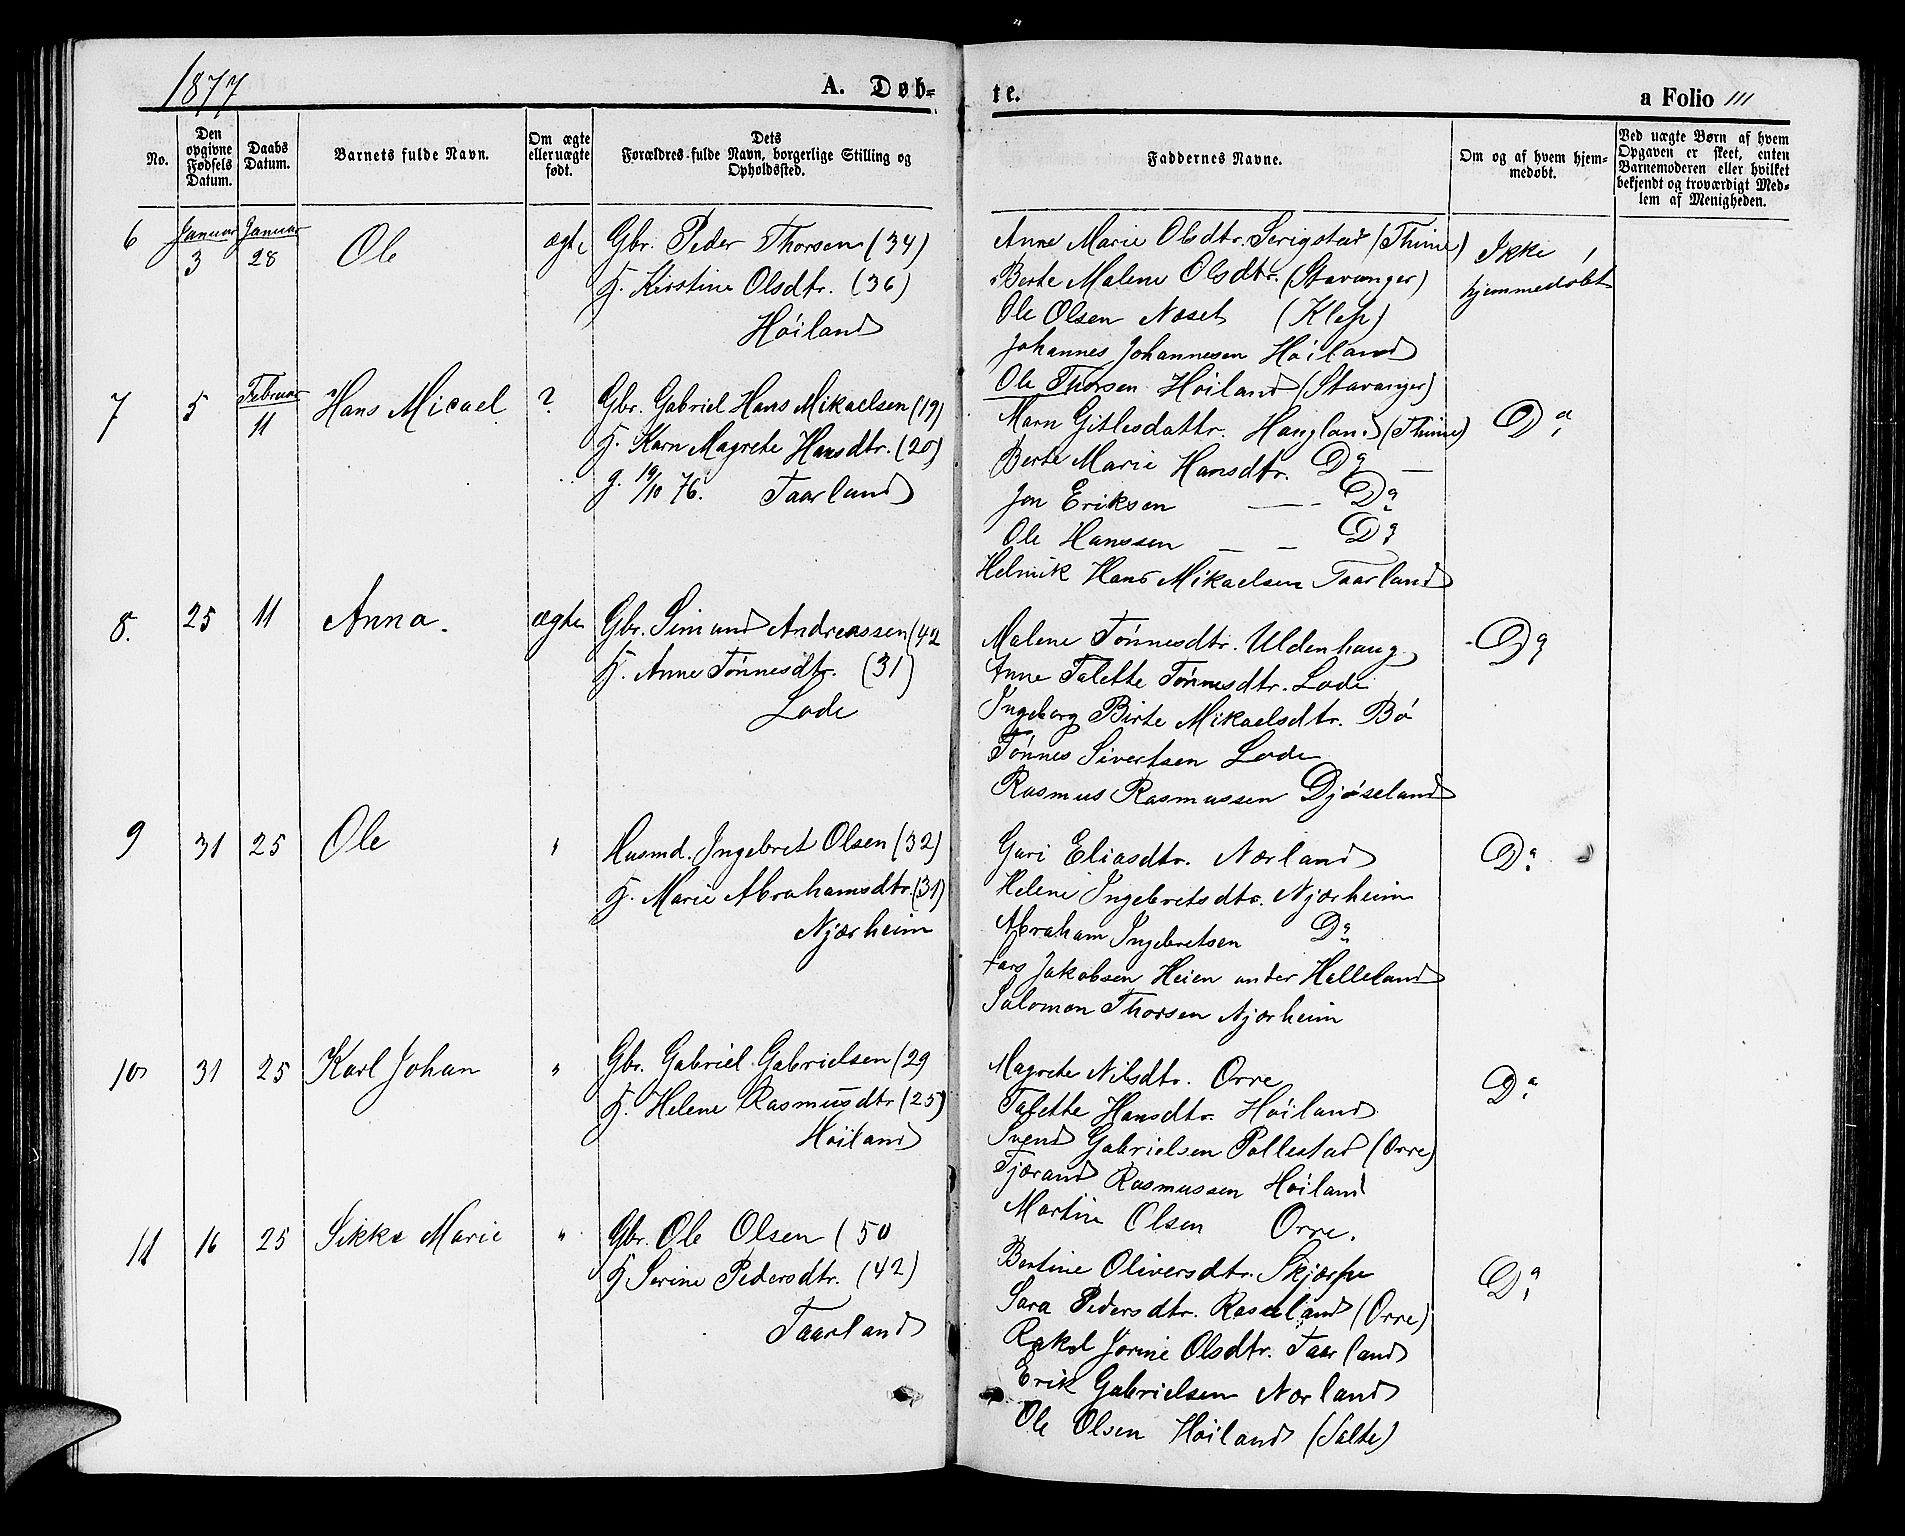 1877
A. Døb-
te.
a Folio 111
No.
Den opgivne Fødsels Datum.
Daabs Datum.
Barnets fulde Navn.
Om ægte eller uægte født.
Dets Forældres fulde Navn, borgerlige Stilling og Opholdssted.
Faddernes Navne.
Om og af hvem hjemmedøbt.
Ved uægte Børn af hvem Opgaven er skeet, enten Barnemoderen eller hvilket bekjendt og troværdigt Medlem af Menigheden.
6
Januar 3
Januar 28
Ole
ægte
Gbr. Peder Thorsen (34)
H. Kirstine Olsdtr. (36)
Höiland
Anne Marie Olsdtr. Serigstad (Thime)
Berte Malene Olsdtr. (Stavanger)
Ole Olsen Næset (Klep)
Johannes Johannesen Höiland
Ole Thorsen Höiland (Stavanger)
Ikke
hjemmedöbt
7
5
Februar 11
Hans Micael
?
Gbr. Gabriel Hans Mikaelsen (19)
H. Karn Magrete Hansdtr. (20)
g. 19/10 76. Taarland
Marn Gitlesdattr. Haugland (Thime)
Berte Marie Hansdtr. Do —
Jon Eriksen — - Do
Ole Hanssen — — Do
Helmik Hans Mikaelsen Taarland
Do
8.
25
11
Anna.
ægte
Gbr. Simund Andreassen (42
H. Anne Tönnesdtr. (31)
Lode
Malene Tönnesdtr. Uldenhaug
Anne Talette Tönnesdtr. Lode
Ingeborg Birte Mikaelsdtr. Bö
Tönnes Sivertsen Lode
Rasmus Rasmussen Djöseland
Do
9
31
25
Ole
"
Husmd. Ingebret Olsen (32)
H. Marie Abrahamsdtr. (31)
Njærheim
Guri Eliasdtr. Nærland
Helene Ingebretsdtr. Njærheim
Abraham Ingebretsen Do
Lars Jakobsen Heien under Helleland
Salomon Thorsen Njærheim
Do
10
31
25
Karl Johan
"
Gbr. Gabriel Gabrielsen (29
H. Helene Rasmusdtr (25)
Höiland
Magrete Nilsdtr. Orre
Talette Hansdtr. Höiland
Svend Gabrielsen Pollestad (Orre)
Tjærand Rasmussen Höiland
Martin Olsen Orre.
Do
11
16
25
Sikke Marie
"
Gbr. Ole Olsen (50
H Serine Pedersdtr. (42)
Taarland
Bertine Oliversdtr. Skjærpe
Sara Pedersdtr. Rosseland (Orre)
Rakel Jorine Olsdtr. Taarland
Erik Gabrielsen Nærland
Ole Olsen Höiland (Salte)
Do